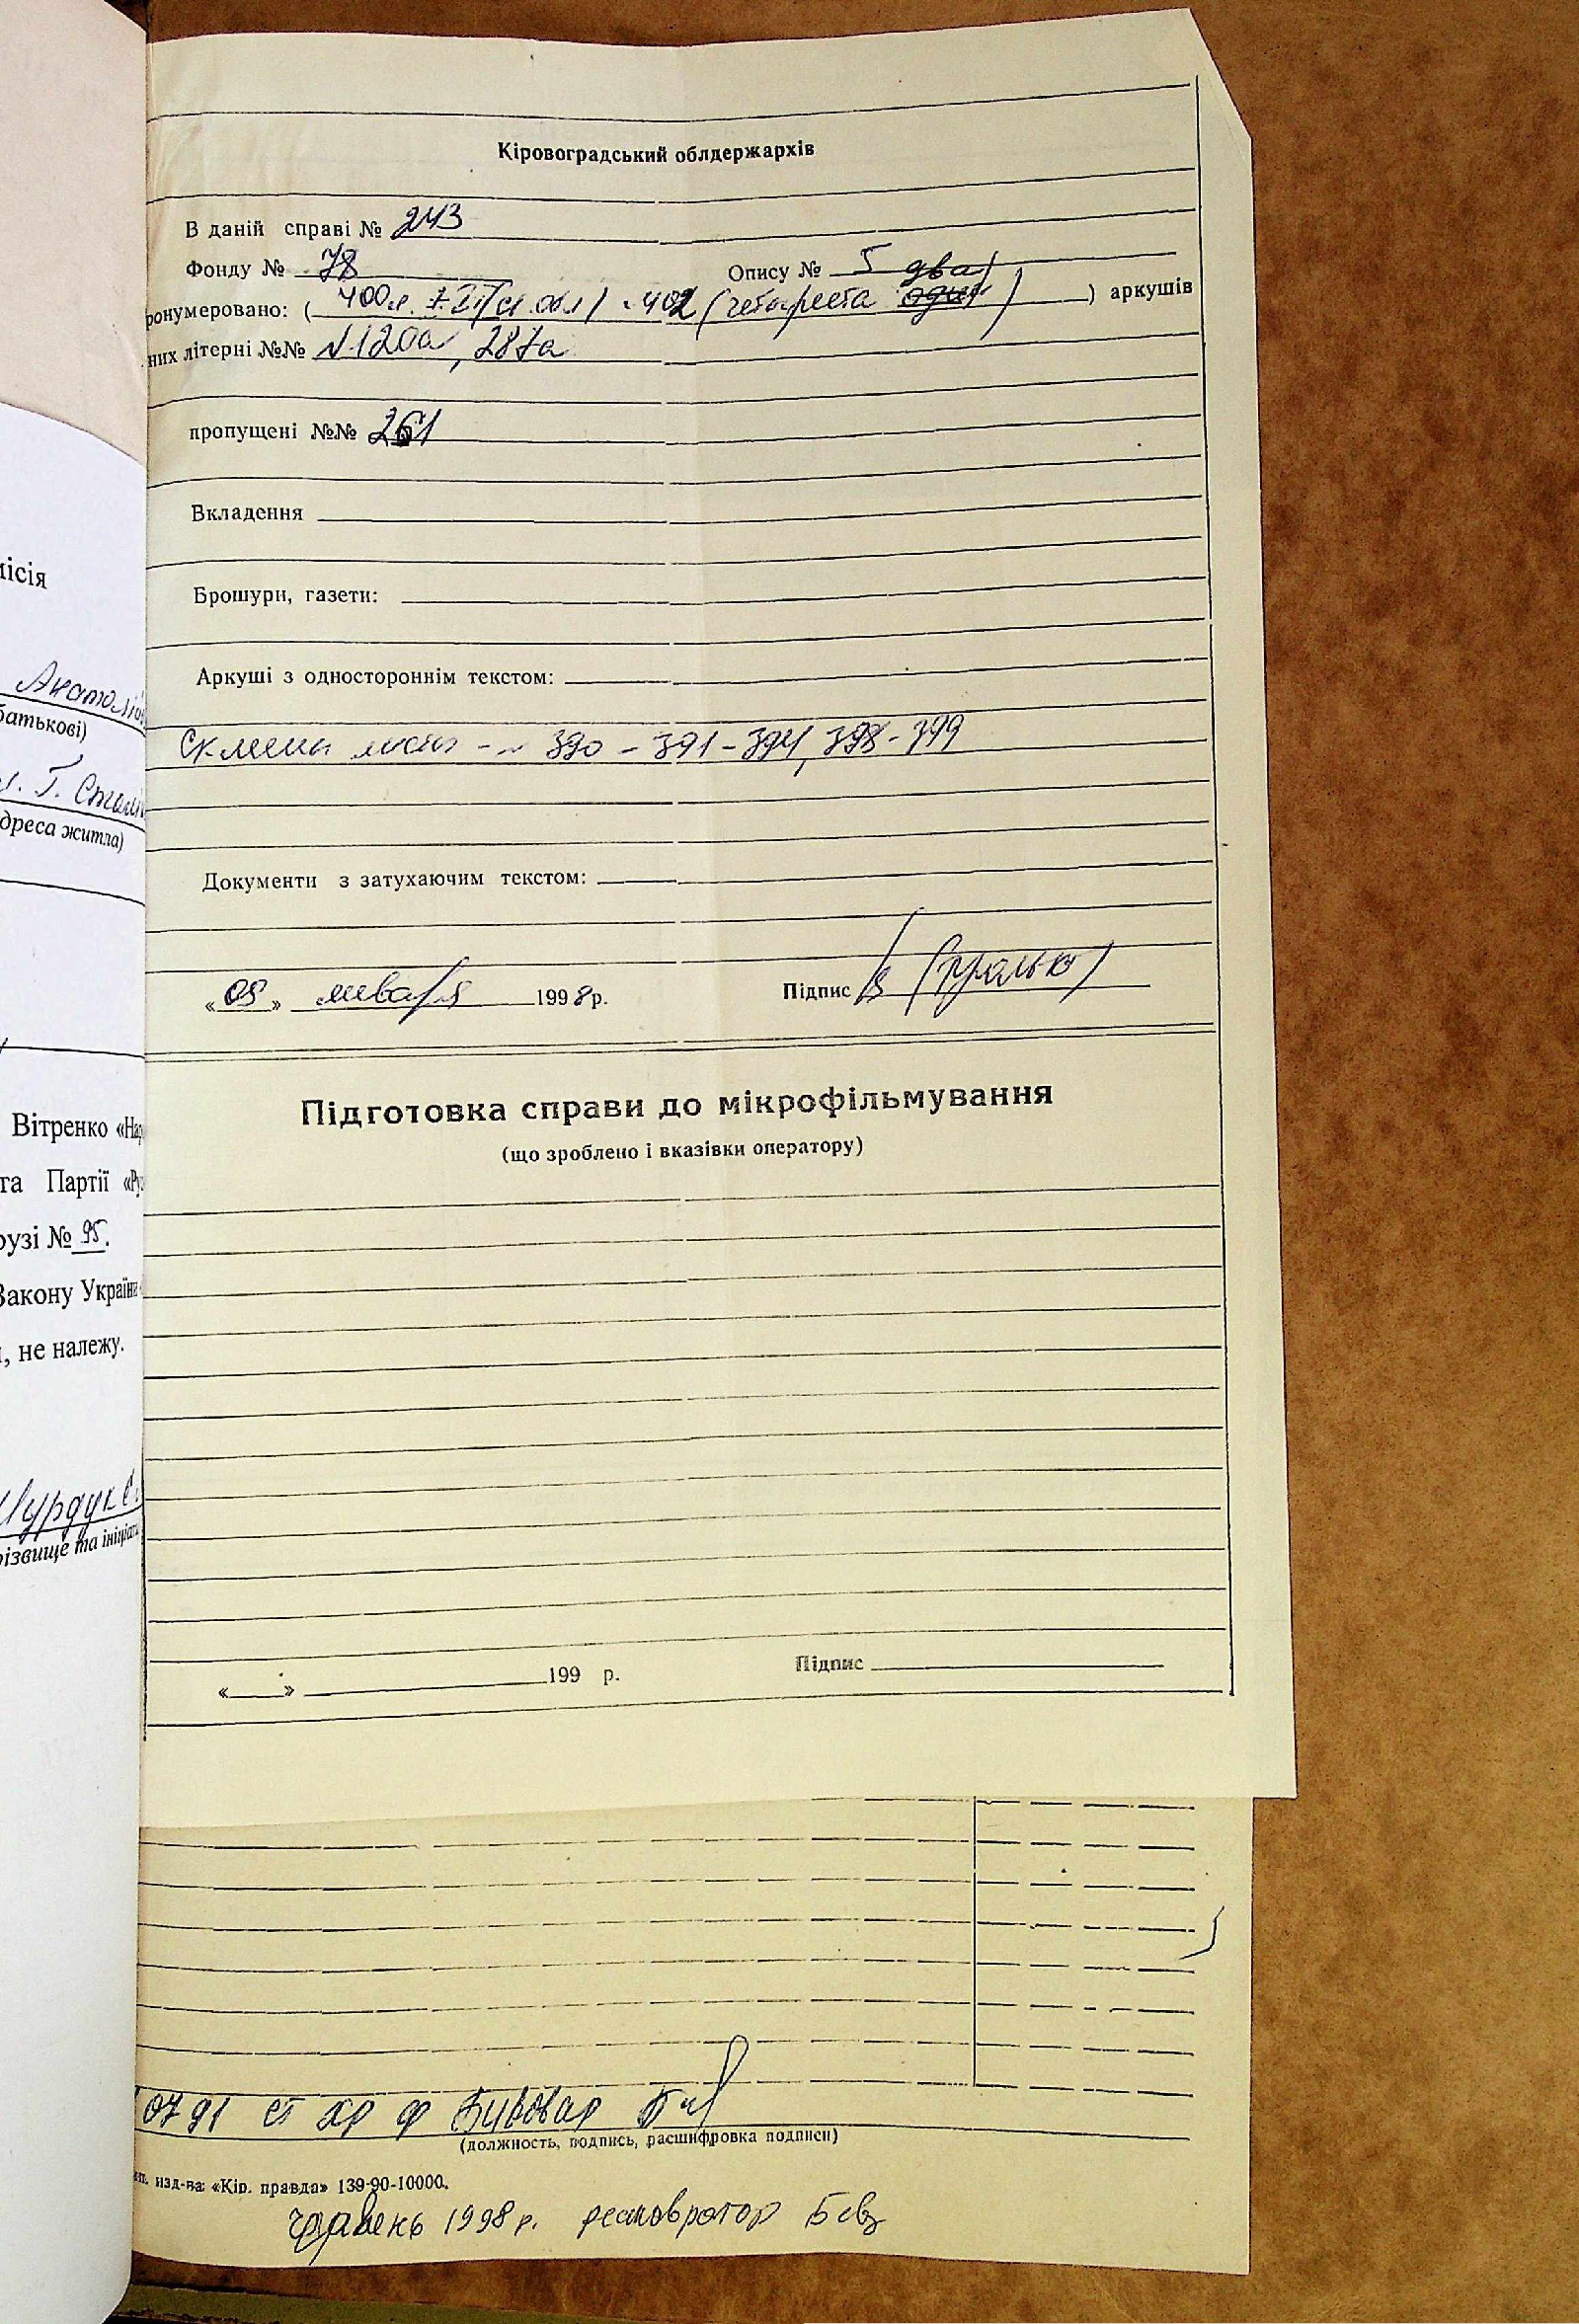 Кіровоградський облдержархів
В даній справі № 243
Фонду № 78 Опису № 5
два)
ронумеровано: ( 400 402 (четыреста один ) ) аркушів
них літерні №№ №120а, 287а
пропущені №№ 261
Вкладення
Брошури, газети:
Аркуші з одностороннім текстом:
390 - 391 - 394, 398 - 399
Документи з затухаючим текстом:
« 05 » января 1998 р. Підпис
Підготовка справи до мікрофільмування
(що зроблено і вказівки оператору)
« » 199 р. Підпис
07 91 ст хр ф
(должность, подпись, расшифровка подписи)
изд-ва «Кір. правда» 139-90-10000.
травень 1998 р. реставратор
місія
батькові)
дреса житла)
Вітренко «Нар
та Партії «
рузі № 95.
Закону України
, не належу.
різвище та ініціали